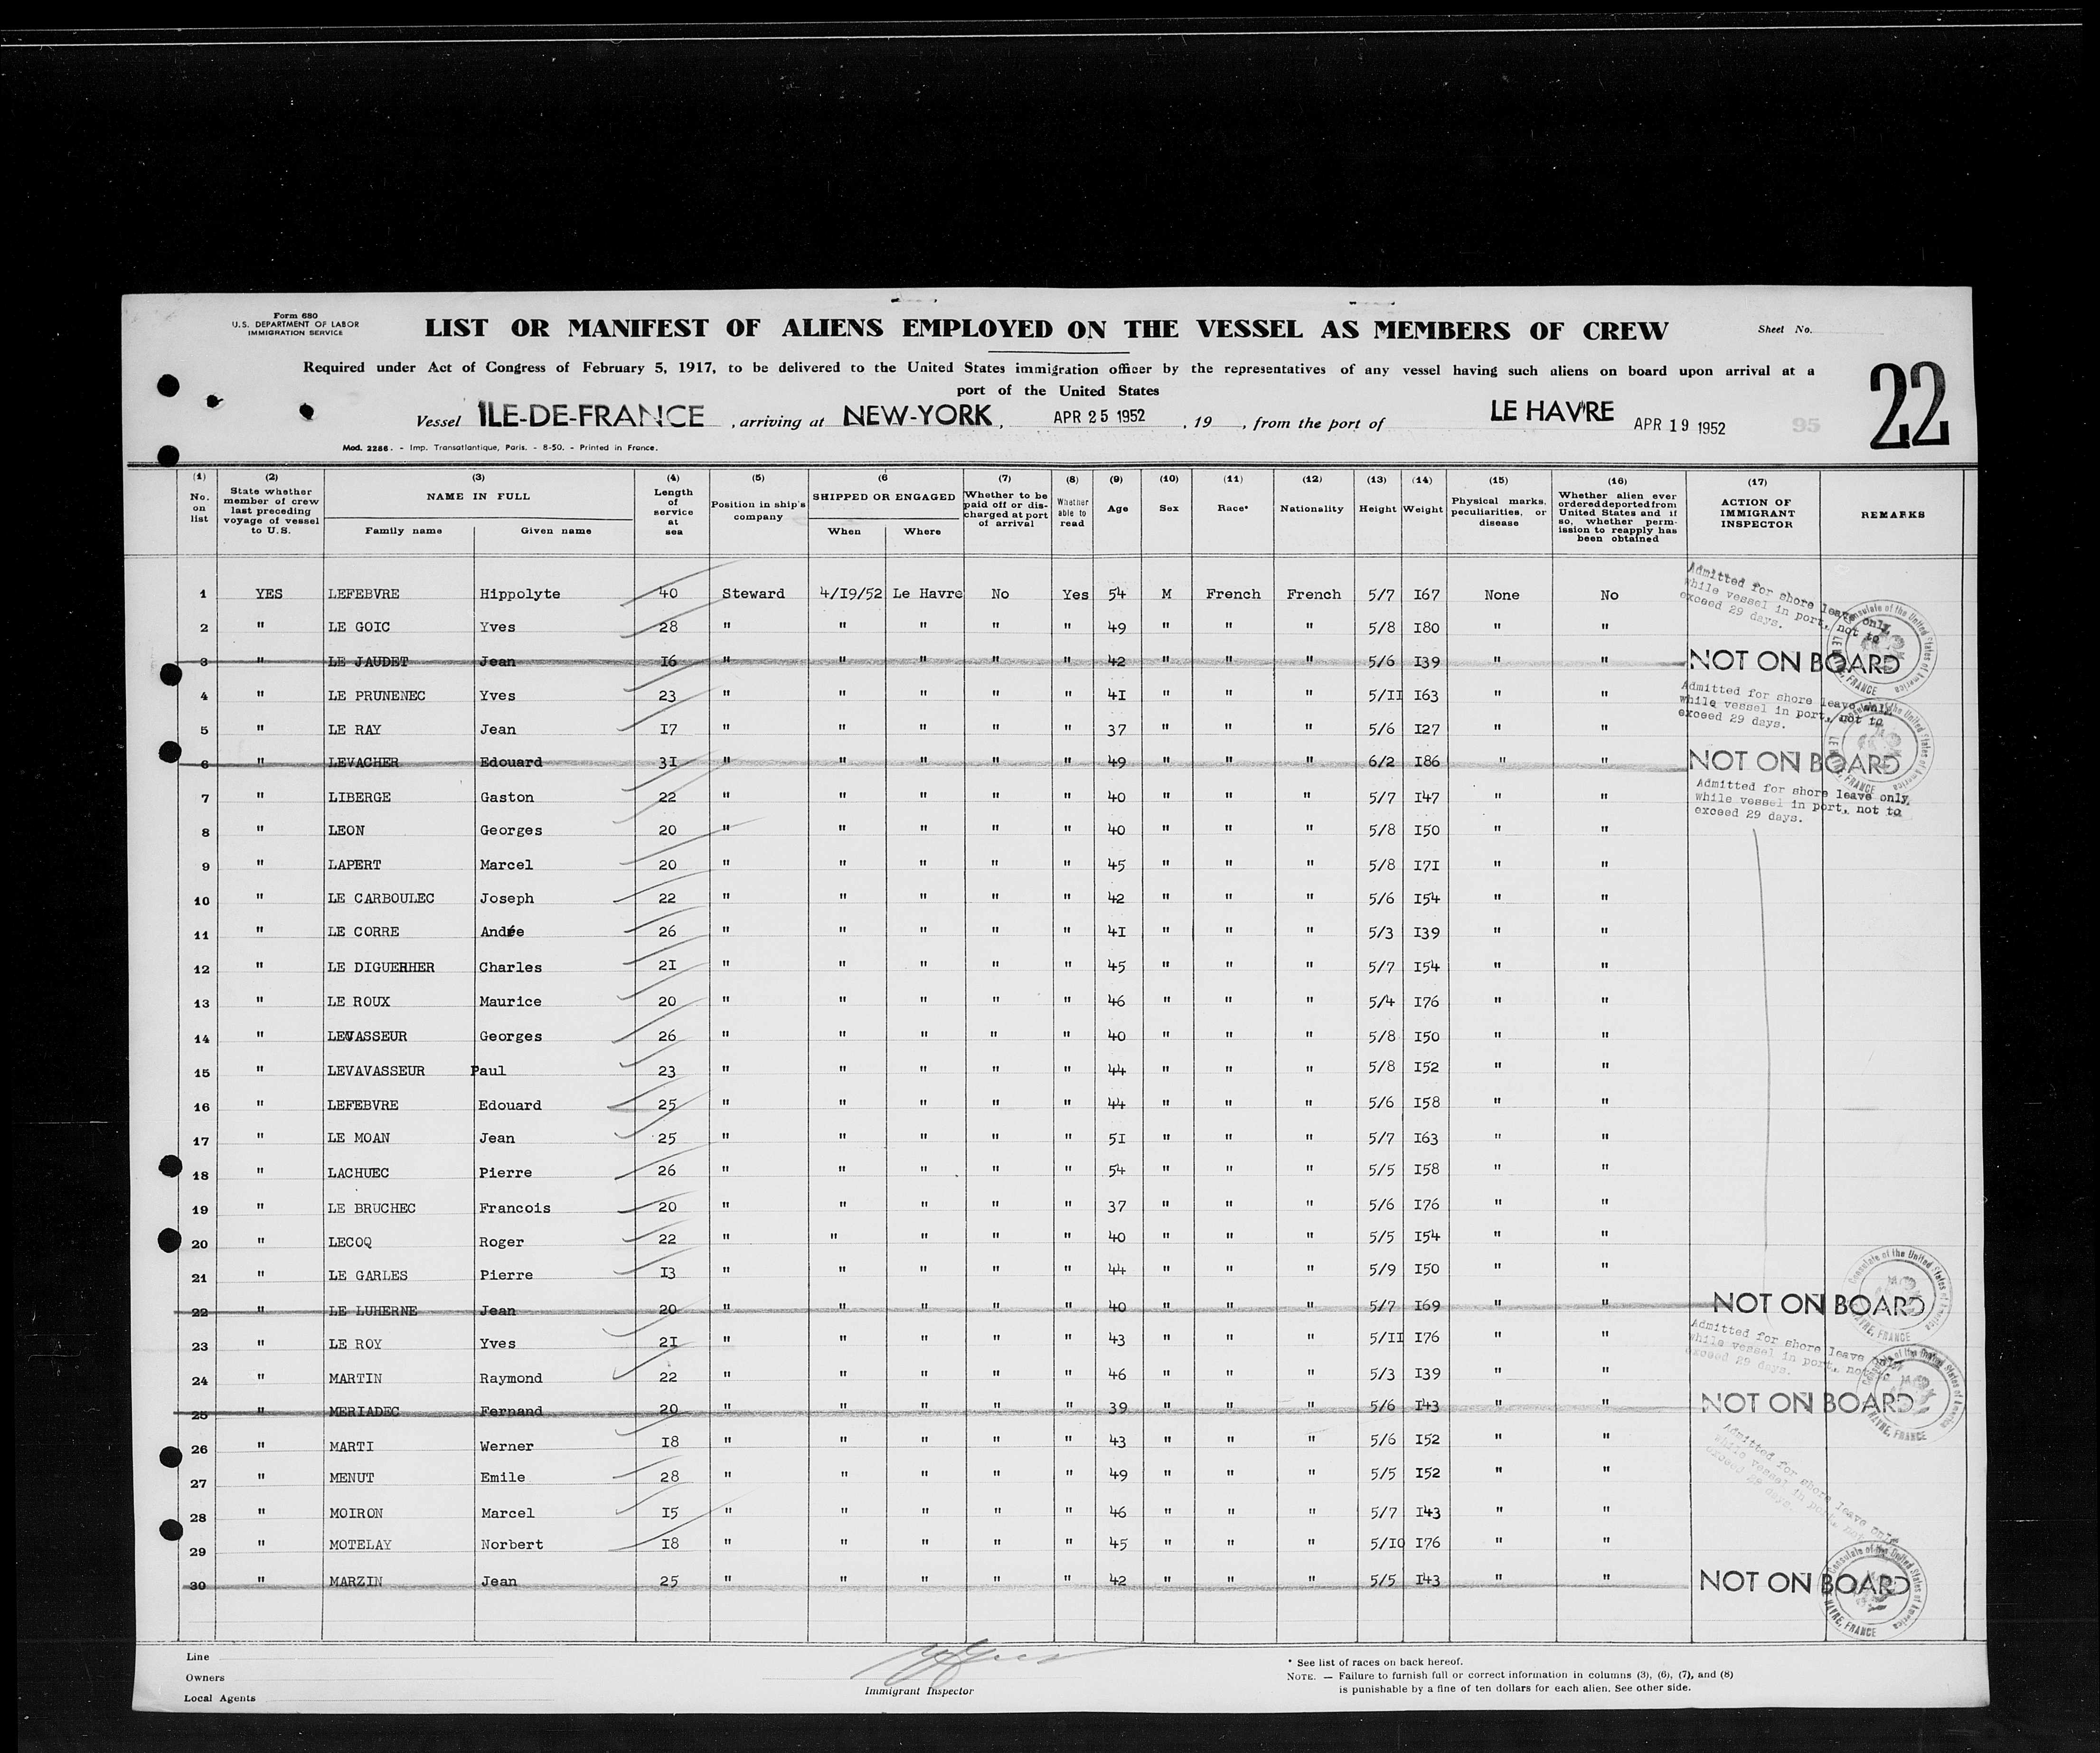 Form 680
U.S. DEPARTMENT OF LABOR
IMMIGRATION SERVICE
LIST OR MANIFEST OF ALIENS EMPLOYED ON THE VESSEL AS MEMBERS OF CREW
Sheet No.
Required under Act of Congress of February 5, 1917, to be delivered to the United States immigration officer by the representatives of any vessel having such aliens on board upon arrival at a
port of the United States
22
Vessel ILE-DE-FRANCE , arriving at NEW-YORK , APR 25 1952 , 19 , from the port of LE HAVRE APR 19 1952 95
Mod. 2286. - Imp. Transatlantique, Paris. - 8-50. - Printed in France.
(1) No. on list (2) State whether member of crew last preceding voyage of vessel to U.S. (3) NAME IN FULL Family name Given name (4) Length of service at sea (5) Position in ship's company (6 SHIPPED OR ENGAGED When Where (7) Whether to be paid off or discharged at port of arrival (8) Whether able to read (9) Age (10) Sex (11) Race* (12) Nationality (13) Height (14) Weight (15) Physical marks, peculiarities, or disease (16) Whether alien ever ordered deported from United States and if so, whether permission to reapply has been obtained (17) ACTION OF IMMIGRANT INSPECTOR REMARKS
1 YES LEFEBVRE Hippolyte 40 Steward 4/I9/52 Le Havre No Yes 54 M French French 5/7 I67 None No Admitted for shore leave only, while vessel in port, not to exceed 29 days.
2 " LE GOIC Yves 28 " " " " " 49 " " " 5/8 I80 " "
3 " LE JAUDET Jean I6 " " " " " 42 " " " 5/6 I39 " " NOT ON BOARD
4 " LE PRUNENEC Yves 23 " " " " " 4I " " " 5/II I63 " " Admitted for shore leave only, while vessel in port, not to exceed 29 days.
5 " LE RAY Jean I7 " " " " " 37 " " " 5/6 I27 " "
6 " LEVACHER Edouard 3I " " " " " 49 " " " 6/2 I86 " " NOT ON BOARD
7 " LIBERGE Gaston 22 " " " " " 40 " " " 5/7 I47 " " Admitted for shore leave only, while vessel in port, not to exceed 29 days.
8 " LEON Georges 20 " " " " " 40 " " " 5/8 I50 " "
9 " LAPERT Marcel 20 " " " " " 45 " " " 5/8 I7I " "
10 " LE CARBOULEC Joseph 22 " " " " " 42 " " " 5/6 I54 " "
11 " LE CORRE Andée 26 " " " " " 4I " " " 5/3 I39 " "
12 " LE DIGUERHER Charles 2I " " " " " 45 " " " 5/7 I54 " "
13 " LE ROUX Maurice 20 " " " " " 46 " " " 5/4 I76 " "
14 " LEVASSEUR Georges 26 " " " " " 40 " " " 5/8 I50 " "
15 " LEVAVASSEUR Paul 23 " " " " " 44 " " " 5/8 I52 " "
16 " LEFEBVRE Edouard 25 " " " " " 44 " " " 5/6 I58 " "
17 " LE MOAN Jean 25 " " " " " 5I " " " 5/7 I63 " "
18 " LACHUEC Pierre 26 " " " " " 54 " " " 5/5 I58 " "
19 " LE BRUCHEC Francois 20 " " " " " 37 " " " 5/6 I76 " "
20 " LECOQ Roger 22 " " " " " 40 " " " 5/5 I54 " "
21 " LE GARLES Pierre I3 " " " " " 44 " " " 5/9 I50 " "
22 " LE LUHERNE Jean 20 " " " " " 40 " " " 5/7 I69 " " NOT ON BOARD
23 " LE ROY Yves 2I " " " " " 43 " " " 5/II I76 " " Admitted for shore leave only while vessel in port, not to exceed 29 days.
24 " MARTIN Raymond 22 " " " " " 46 " " " 5/3 I39 " "
25 " MERIADEC Fernand 20 " " " " " 39 " " " 5/6 I43 " " NOT ON BOARD
26 " MARTI Werner I8 " " " " " 43 " " " 5/6 I52 " " Admitted for shore leave only while vessel in port, not to exceed 29 days.
27 " MENUT Emile 28 " " " " " 49 " " " 5/5 I52 " "
28 " MOIRON Marcel I5 " " " " " 46 " " " 5/7 I43 " "
29 " MOTELAY Norbert I8 " " " " " 45 " " " 5/I0 I76 " "
30 " MARZIN Jean 25 " " " " " 42 " " " 5/5 I43 " " NOT ON BOARD
Consulate of the United States of America LE HAVRE, FRANCE
Consulate of the United States of America LE HAVRE, FRANCE
Consulate of the United States of America HAVRE, FRANCE
Consulate of the United States of America HAVRE, FRANCE
Consulate of the United States of America HAVRE, FRANCE
Line
Owners
Local Agents
Immigrant Inspector
* See list of races on back hereof.
NOTE. — Failure to furnish full or correct information in columns (3), (6), (7), and (8)
is punishable by a fine of ten dollars for each alien. See other side.